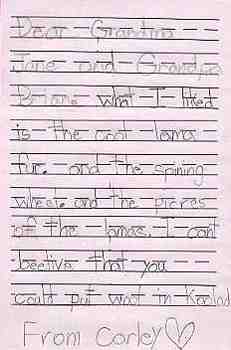 Dear Grandma
Jane and Grandpa
Brian, what I liked
is the cool lama
fur. and the spining
wheel. and the picres
off the lamas. I cant
beelive that you
could put woot in Koolad
From Corley